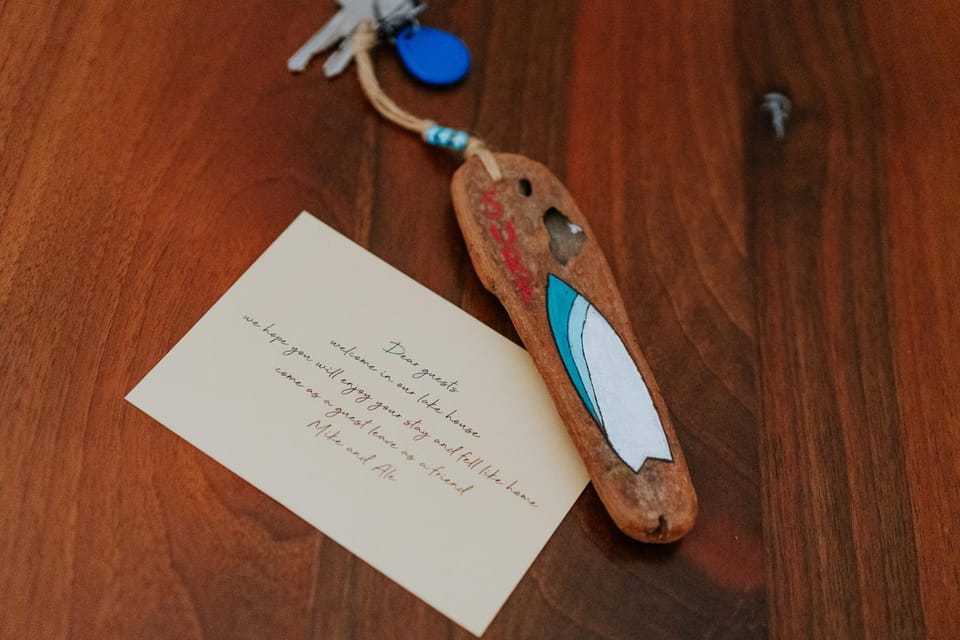 SURF
Dear guests
welcome in our lake house
we hope you will enjoy your stay and fell like home
come as a guest leave as a friend
Mike and Ale